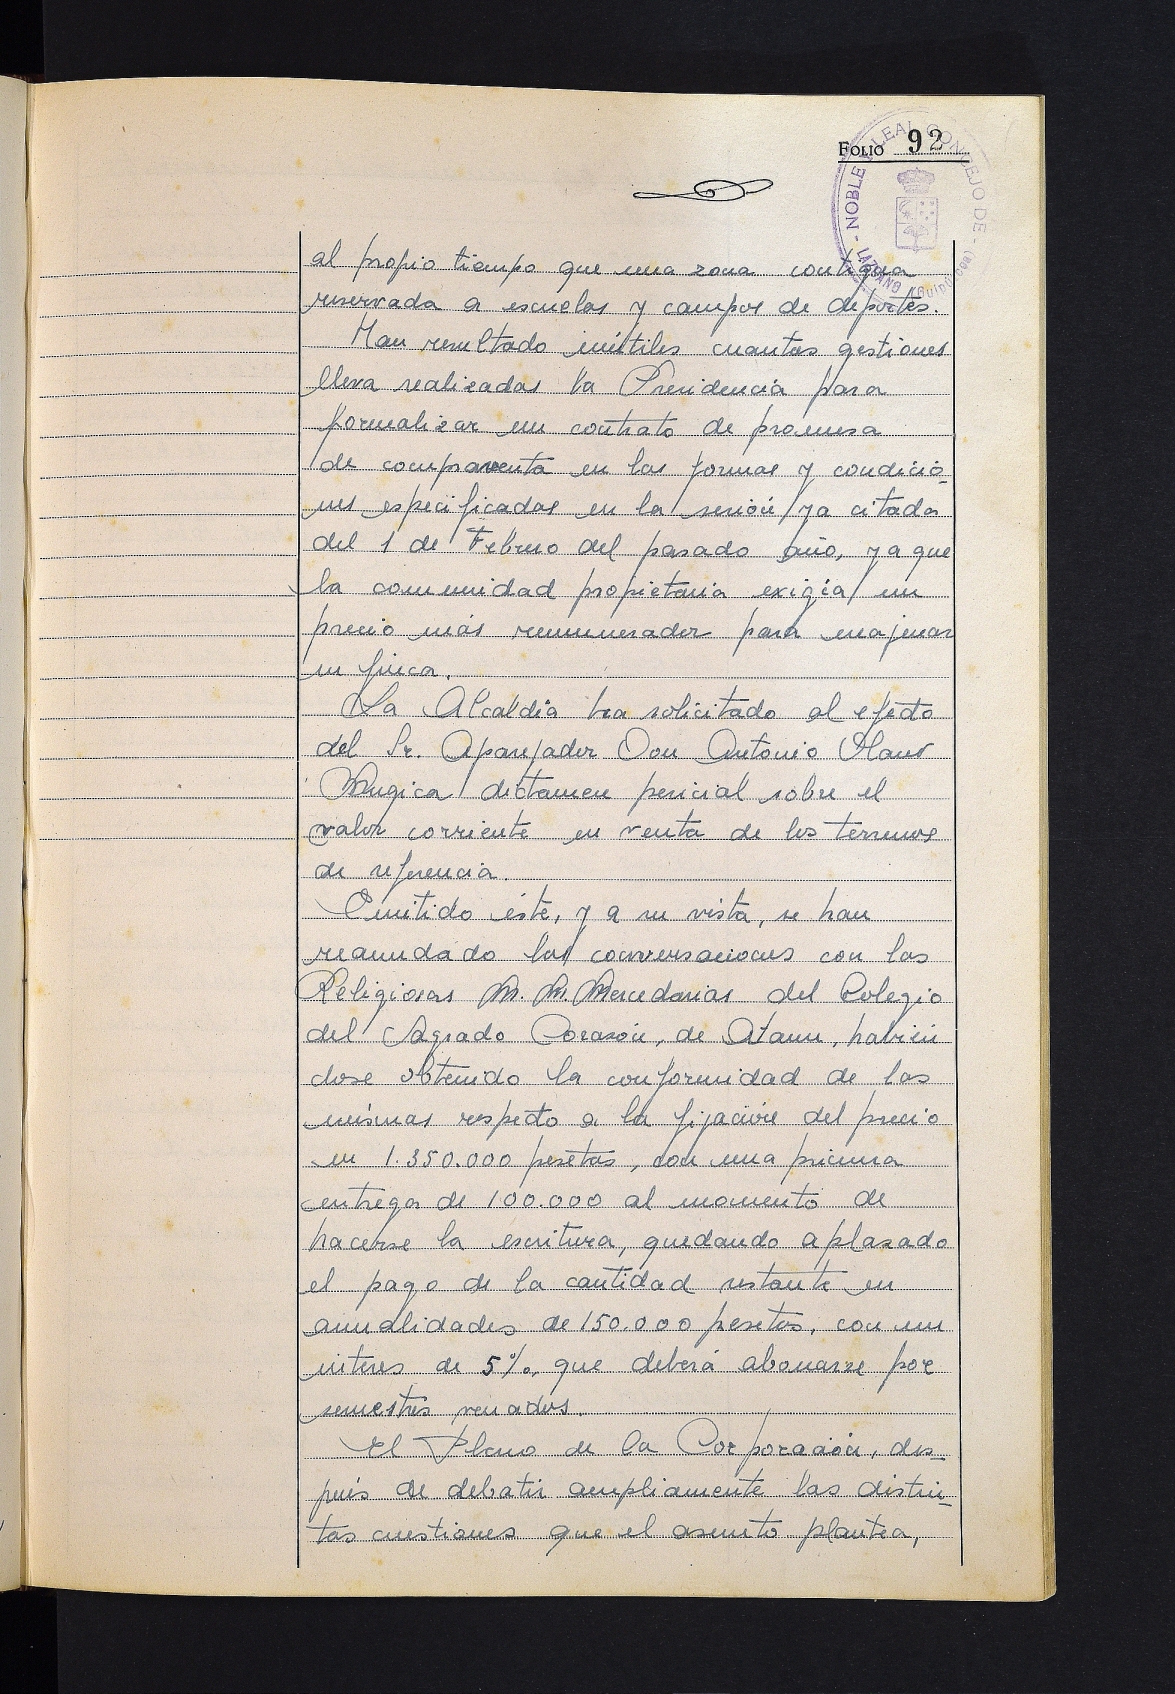 FOLIO 92
NOBLE Y LEAL CONCEJO DE - LAZCANO (Guipúzcoa)
al propio tiempo que una zona contigua
reservada a escuelas y campos de deportes.
Han resultado inútiles cuantas gestiones
lleva realizadas la Presidencia para
formalizar un contrato de promesa
de compraventa en las formas y condicio-
nes especificadas en la sesión ya citada
del 1 de Febrero del pasado año, ya que
la comunidad propietaria exigía un
precio más remunerador para enajenar
su finca.
La Alcaldía ha solicitado al efecto
del Sr. Aparejador Don Antonio
Mugica dictamen pericial sobre el
valor corriente en venta de los terrenos
de referencia.
Emitido éste, y a su vista, se han
reanudado las conversaciones con las
Religiosas M. M. Mercedarias del Colegio
del Sagrado Corazón, de Ataun, habién
dose obtenido la conformidad de las
mismas respecto a la fijación del precio
en 1.350.000 pesetas, con una primera
entrega de 100.000 al momento de
hacerse la escritura, quedando aplazado
el pago de la cantidad restante en
anualidades de 150.000 pesetas, con un
interes de 5%, que deberá abonarse por
semestres vencidos.
El Pleno de la Corporación, des-
pués de debatir ampliamente las distin-
tas cuestiones que el asunto plantea,